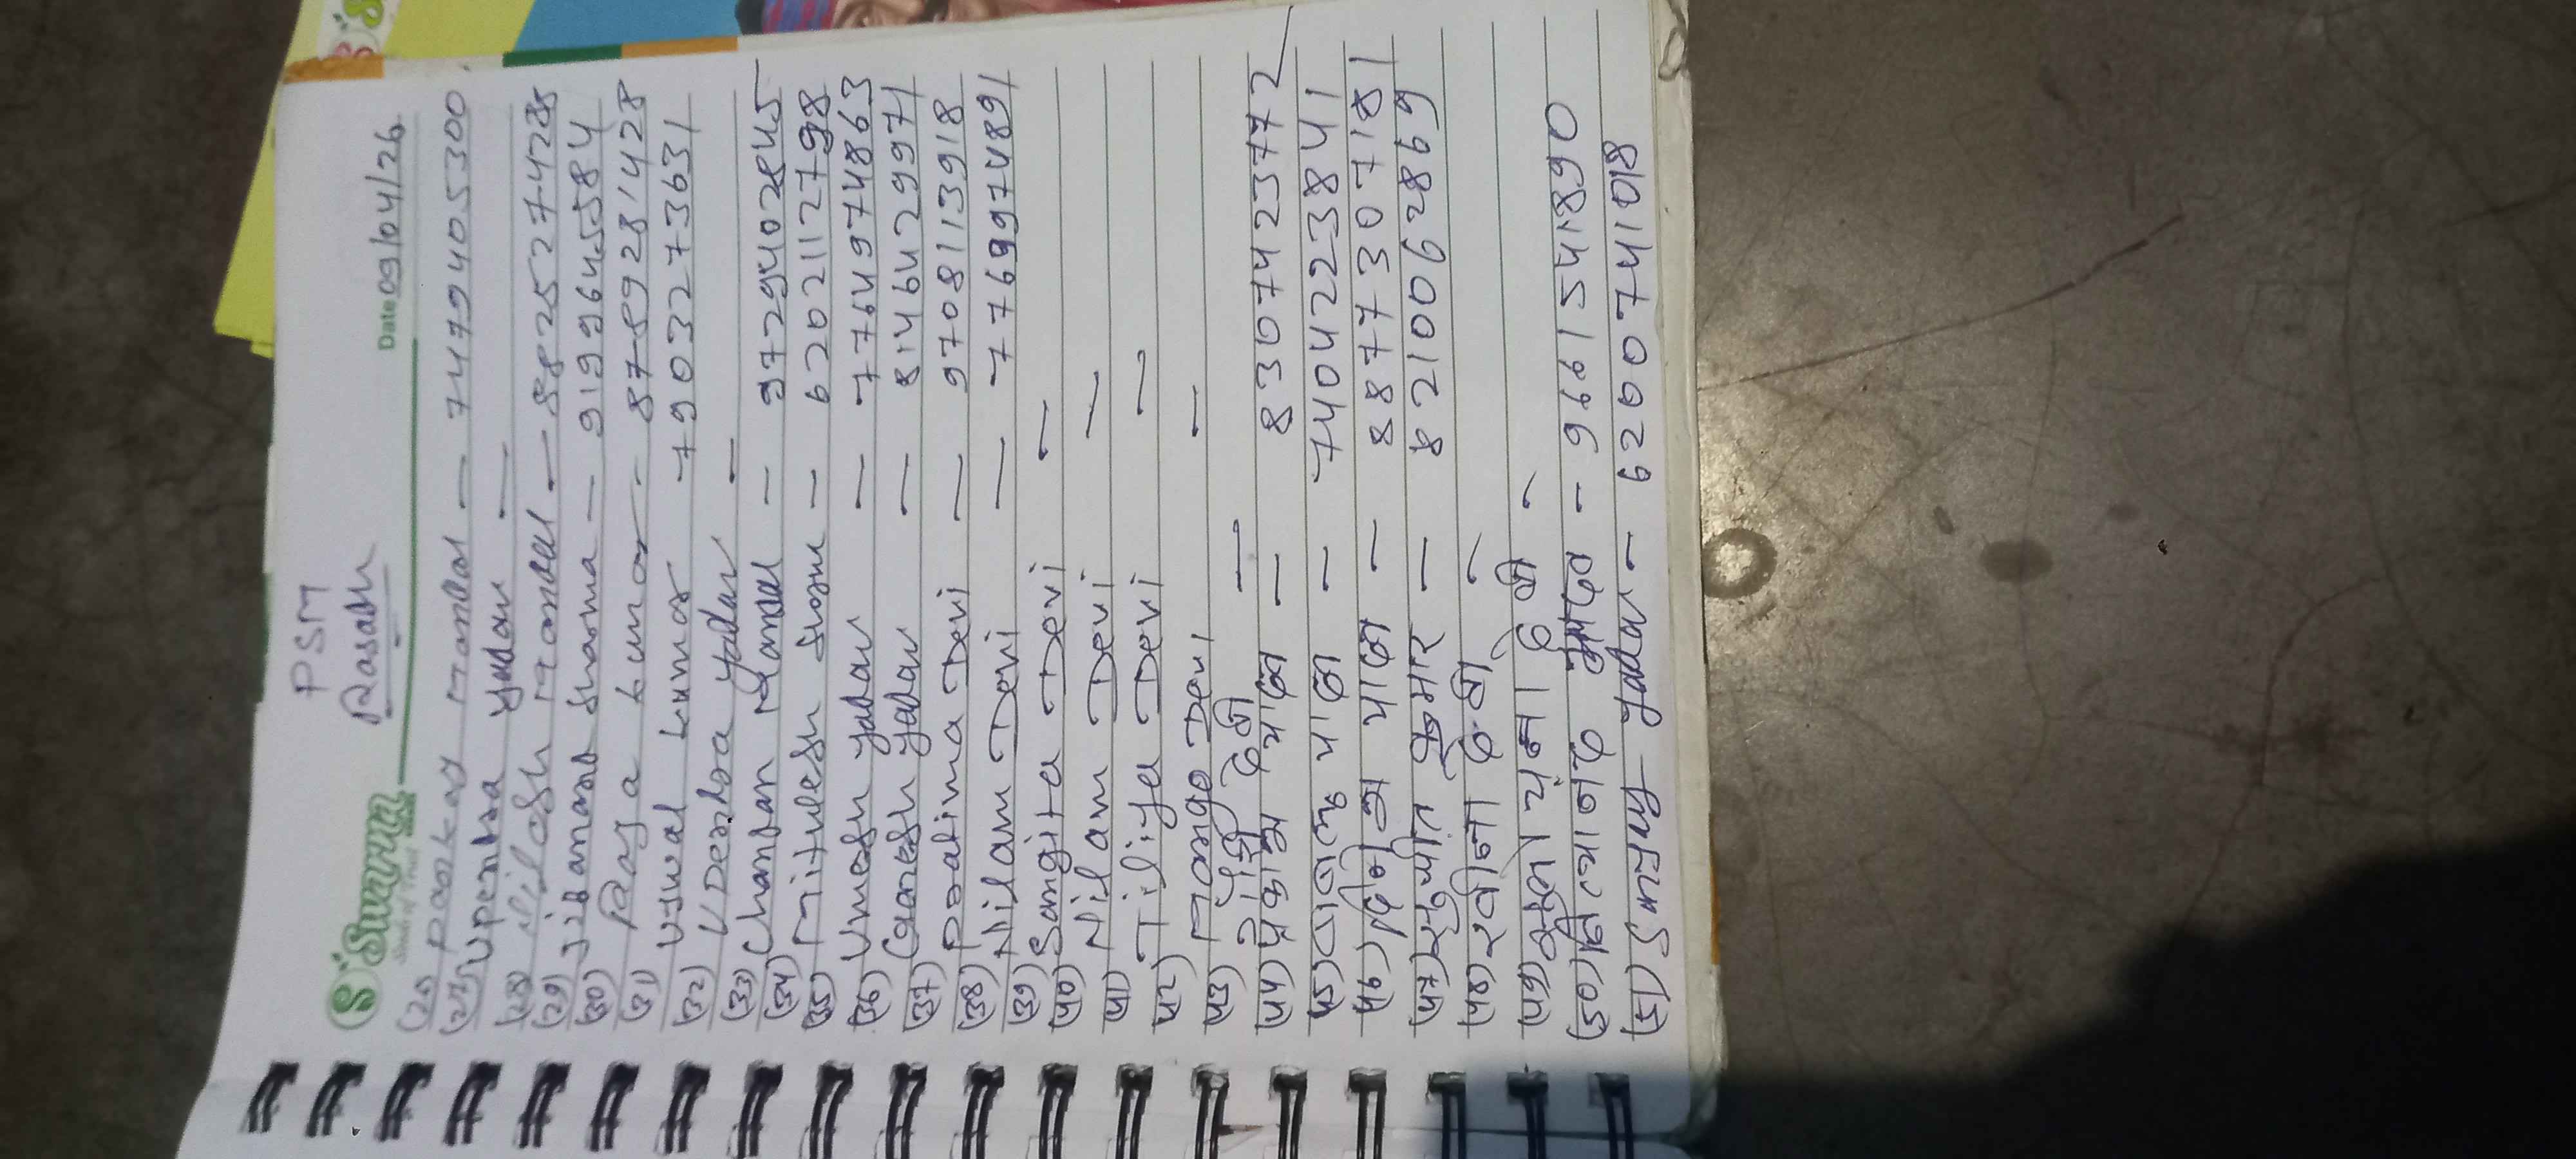 PSM
Rasadh
Suvarna
Date 09/04/26
(25 Pankaj Mandal — 7479405300
(27) Upendra Yadav —
(28) Nilesh Mandal — 8825277428
(29) Jibanand Sharma — 9199645584
(30) Raja Kumar - 8789281428
(31) Ujwal Kumar - 7903273631
(32) Udendra Yadav —
(33) Chandan Mandal — 9729402845
(34) Mithlesh — 6202112798
(35) Umesh Yadav — 7764974863
(36) Ganesh Yadav — 8146429971
(37) Pratima Devi — 9708113918
(38) Nilam Devi — 7769974891
(39) Sangita Devi —
(40) Nilam Devi —
(41) Tiliya Devi —
(42) Mango Devi —
(43) देवी —
(44) प्रकाश यादव — 8307423772
(45) यादव — 7404223841
(46) यादव — 8877307181
(47) कुमार — 8210062869
(48) देवी -
(49) देवी -
(50) नित्यानंद - 9661541890
(51) Sanjay Yadav - 6200741018